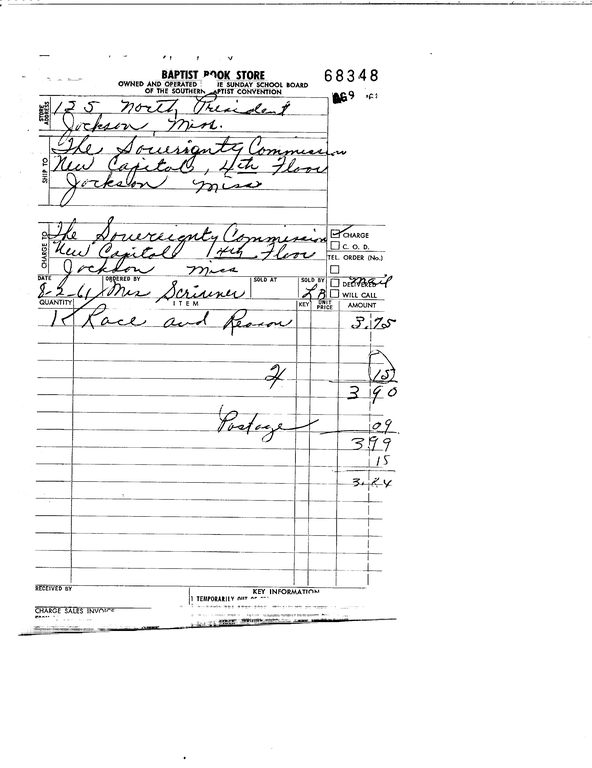 BAPTIST BOOK STORE 68348
OWNED AND OPERATED IE SUNDAY SCHOOL BOARD
OF THE SOUTHERN APTIST CONVENTION
STORE ADDRESS 125 North President
Jackson, Miss.
SHIP TO The Soverignty Commission
New Capitol, 4th Floor
Jackson Miss
CHARGE TO The Sovereignty Commission CHARGE
New Capitol 4th Floor C. O. D.
TEL. ORDER (No.)
Jackson Miss
DATE ORDERED BY SOLD AT SOLD BY DELIVERED mail
8-2-61 Mrs Scrivner LB WILL CALL
QUANTITY ITEM KEY UNIT PRICE AMOUNT
1 Race and Reason 3.75
15
3 90
Postage 09
3 99
15
3.84
RECEIVED BY KEY INFORMATION
1 TEMPORARILY OUT OF
CHARGE SALES INVOICE